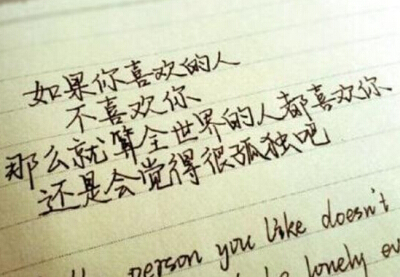 如果你喜欢的人
不喜欢你
那么就算全世界的人都喜欢你
还是会觉得很孤独吧
person you like doesn't
lonely